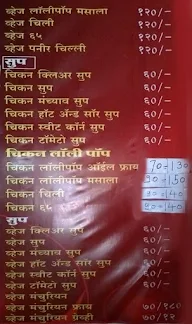 व्हेज लॉलीपॉप मसाला १२०/-
व्हेज चिली १२०/-
व्हेज ६५ १२०/-
व्हेज पनीर चिल्ली १२०/-
सुप
चिकन क्लिअर सुप ६०/-
चिकन सुप ६०/-
चिकन मंच्याव सुप ६०/-
चिकन हॉट अॅन्ड सॉर सुप ६०/-
चिकन स्वीट कॉर्न सुप ६०/-
चिकन टॉमेटो सुप ६०/-
चिकन लॉली पॉप
चिकन लॉलीपॉप ऑईल फ्राय 70-130
चिकन लॉलीपॉप मसाला 90-150
चिकन चिली
चिकन ६५
सुप
व्हेज क्लिअर सुप ६०/-
व्हेज सुप ६०/-
व्हेज मंच्याव सुप ६०/-
व्हेज हॉट अॅन्ड सॉर सुप ६०/-
व्हेज स्वीट कॉर्न सुप ६०/-
व्हेज टॉमेटो सुप ६०/-
व्हेज मंचुरियन
व्हेज मंचुरियन फ्राय
व्हेज मंचुरियन ग्रेव्ही